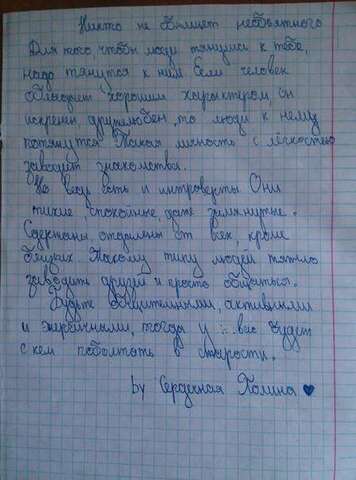 Никто не обнимет необъятного
Для того чтобы люди тянулись к тебе,
надо тянутся к ним Если человек
обладает хорошим характером, он
искренн, дружелюбен, то люди к нему
потянутся Такая личность с лёгкостью
заводит знакомства.
Но ведь есть и интроверты Они
тихие спокойные, даже замкнутые.
Сдержаны, отдалены от всех, кроме
близких Такому типу людей тяжело
заводить друзей и просто общаться.
Будьте общительными, активными
и энергичными, тогда у вас будет
с кем поболтать в старости.
by Сердечная Полина ♥